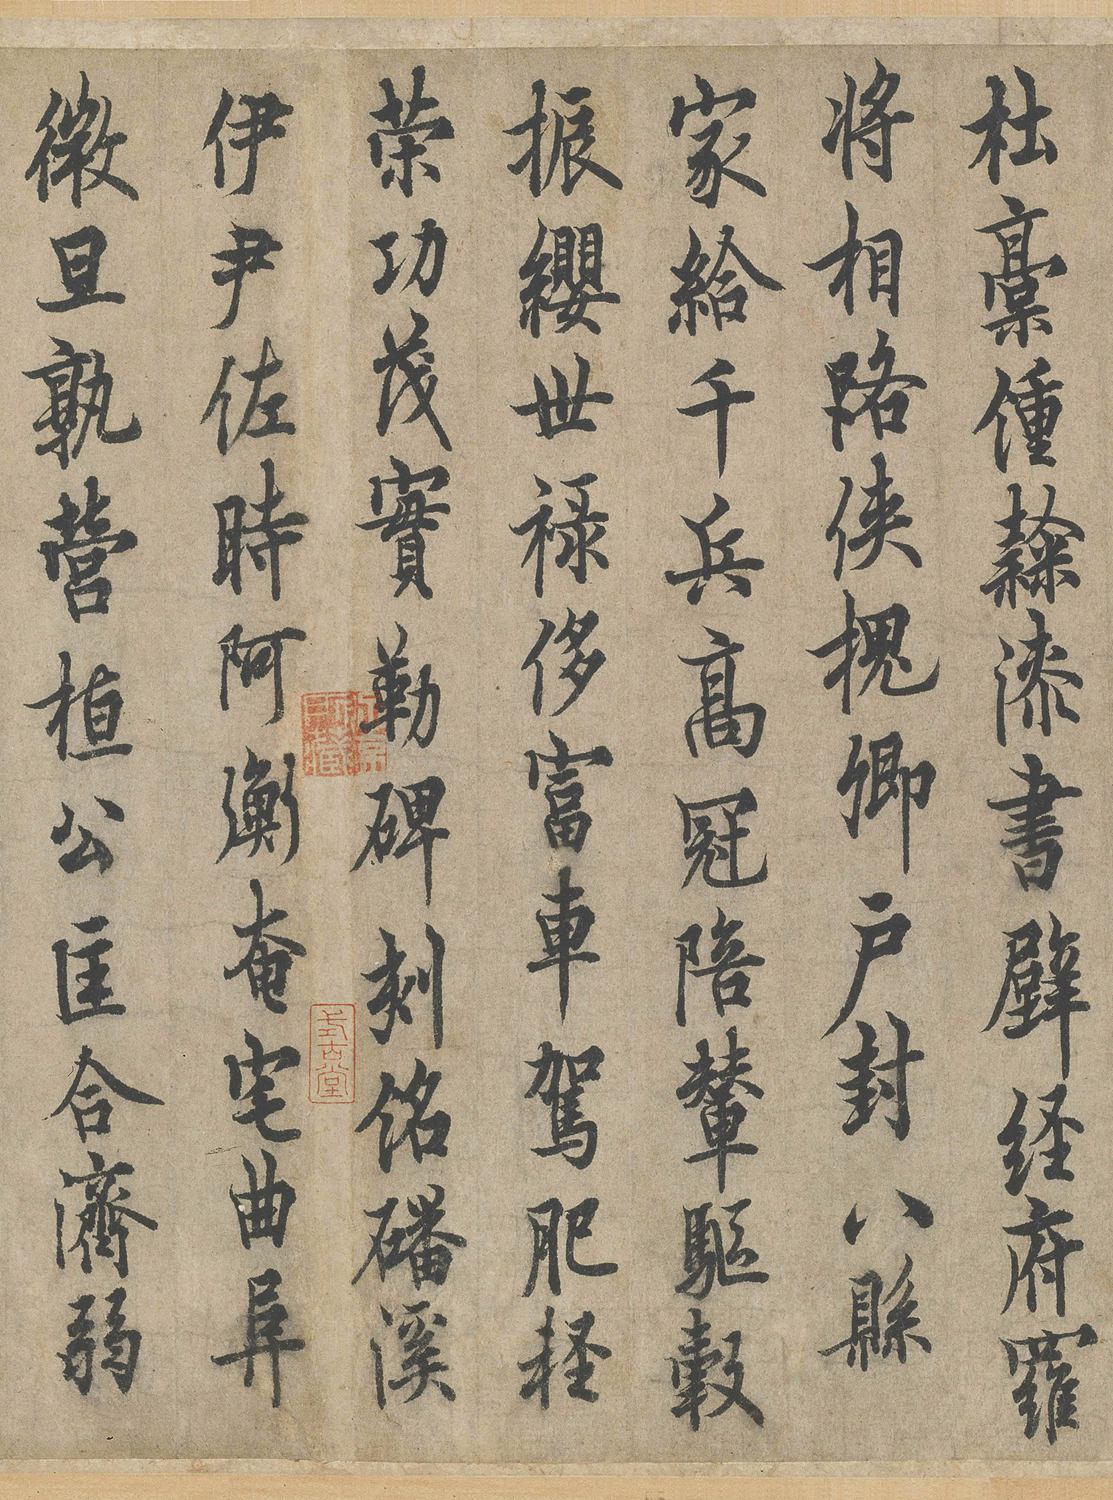 杜稾鍾隸漆書壁経府羅
将相路俠槐卿户封八縣
家給千兵高冠陪輦驅轂
振纓世禄侈富車駕肥軽
策功茂實勒碑刻銘磻溪
伊尹佐時阿衡奄宅曲阜
微旦孰營桓公匡合濟弱
式古堂